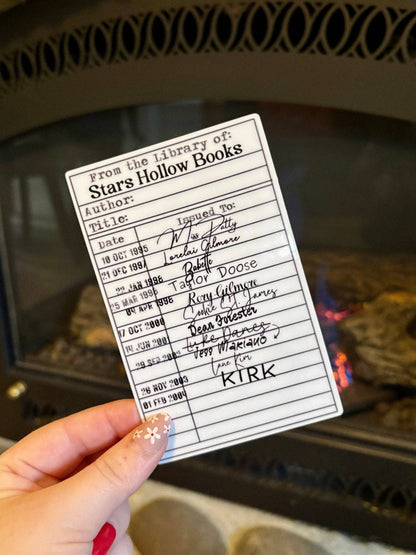 From the Library of:
Stars Hollow Books
Author:
Title:
Issued To:
Date
10 OCT 1995 Miss Patty
21 DEC 1997 Lorelai Gilmore
22 JAN 1998 Babette
25 MAR 1998 Taylor Doose
04 APR 1998 Rory Gilmore
17 OCT 2000 Sookie St. James
14 JUN 2001 Dean Forester
29 SEP 2002 Luke Danes
Jess Mariano
28 NOV 2003 Lane Kim
01 FEB 2004 KIRK